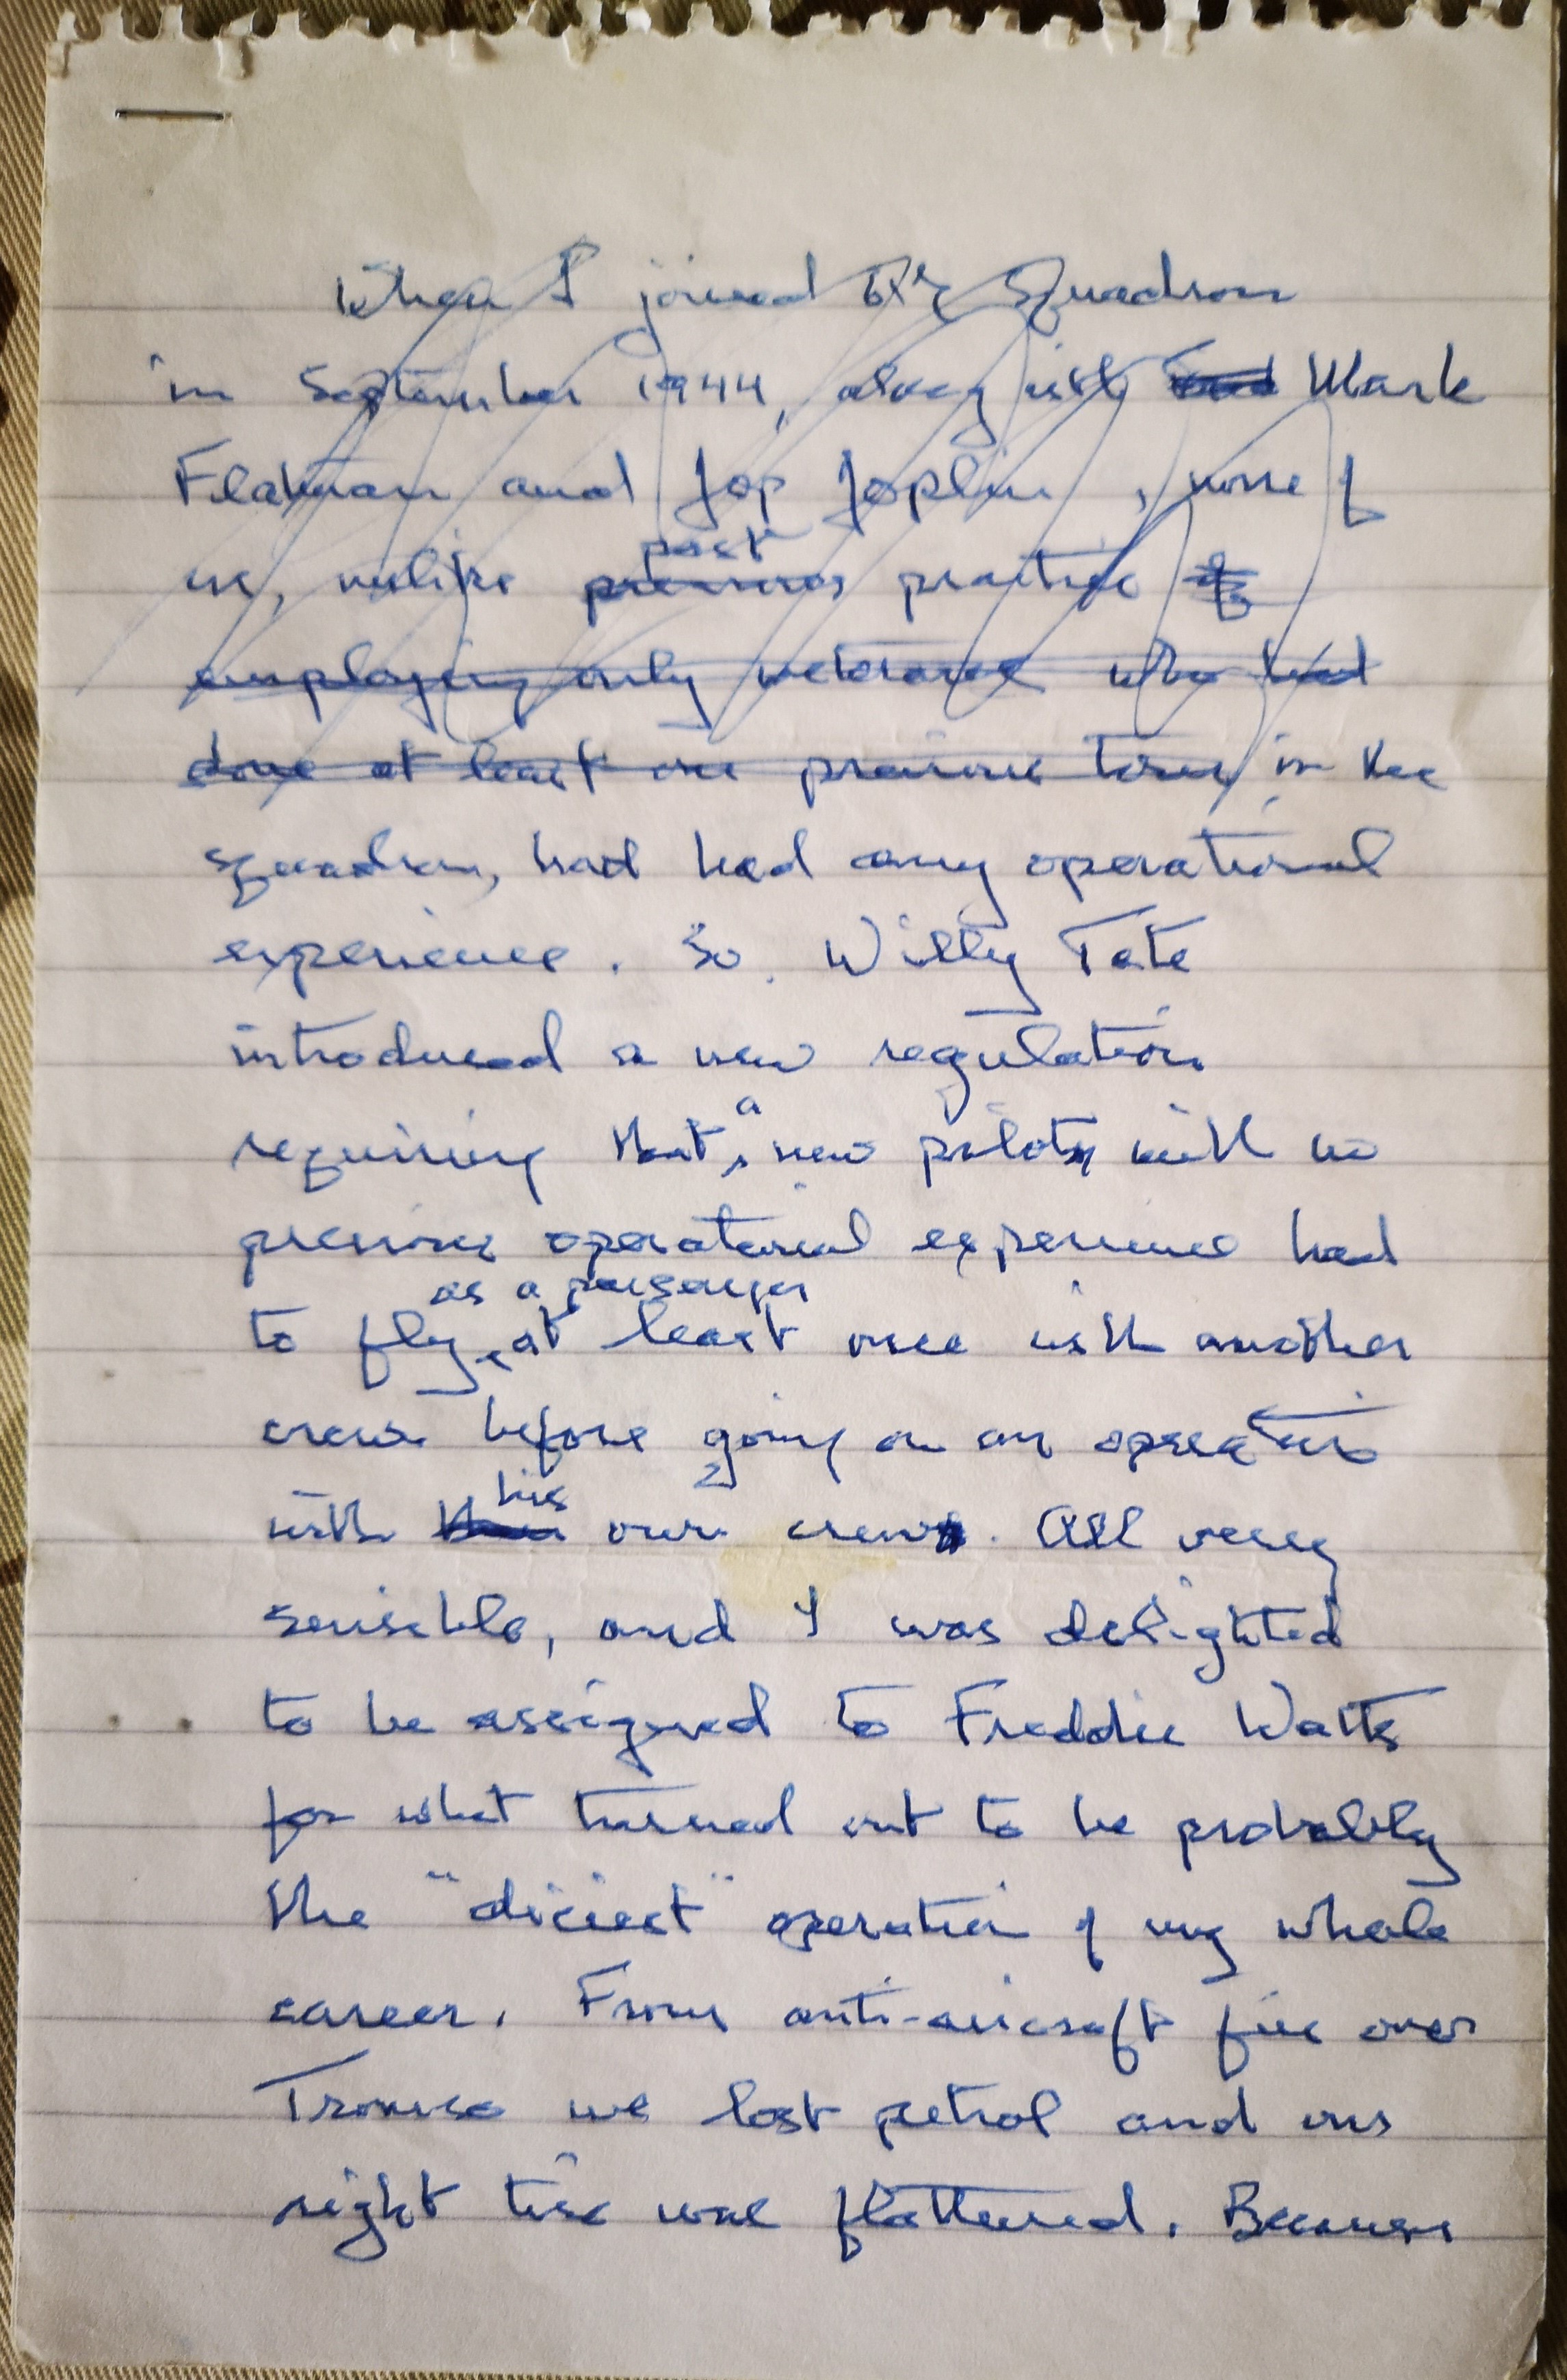 When I joined 617 Squadron
in September 1944, along with Mark
Flatman and Jop Joplin, none of
past
us, unlike previous practice of
employing only veterans who had
done at least one previous tour, in the
squadron, had had any operational
experience. So, Willy Tate
introduced a new regulation
a
requiring that new pilot with no
previous operational experience had
as a passenger
to fly at least once with another
crew before going on an operation
his
with their own crew. All very
sensible, and I was delighted
to be assigned to Freddie Watts
for what turned out to be probably
the "diciest" operation of my whole
career. From anti-aircraft fire over
Tromso we lost petrol and our
right tire was flattened. Because